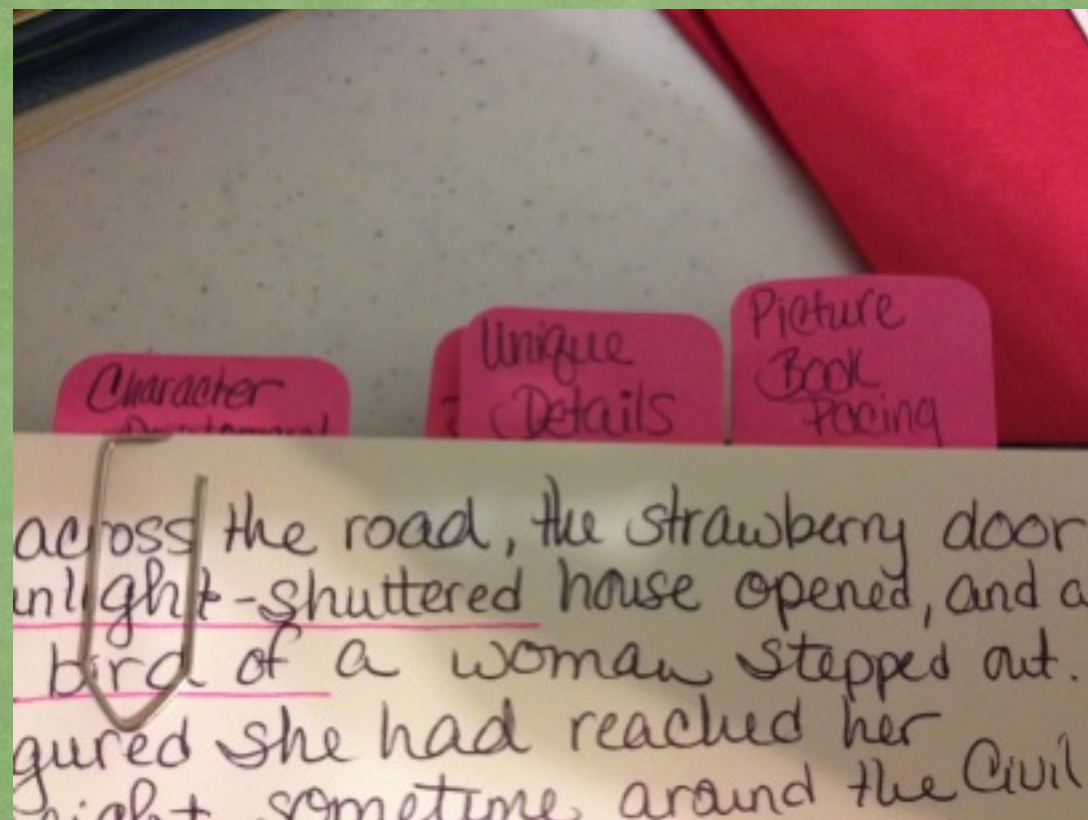 Character
Development
Unique
Details
Picture
Book
Pacing
across the road, the strawberry door
nlight-shuttered house opened, and a
bird of a woman stepped out.
gured she had reached her
sometime around the Civil